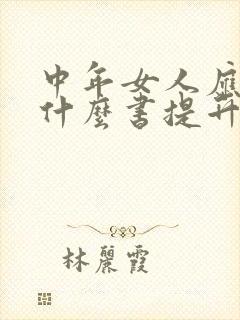 中年女人應
什麼書提升
林麗霞